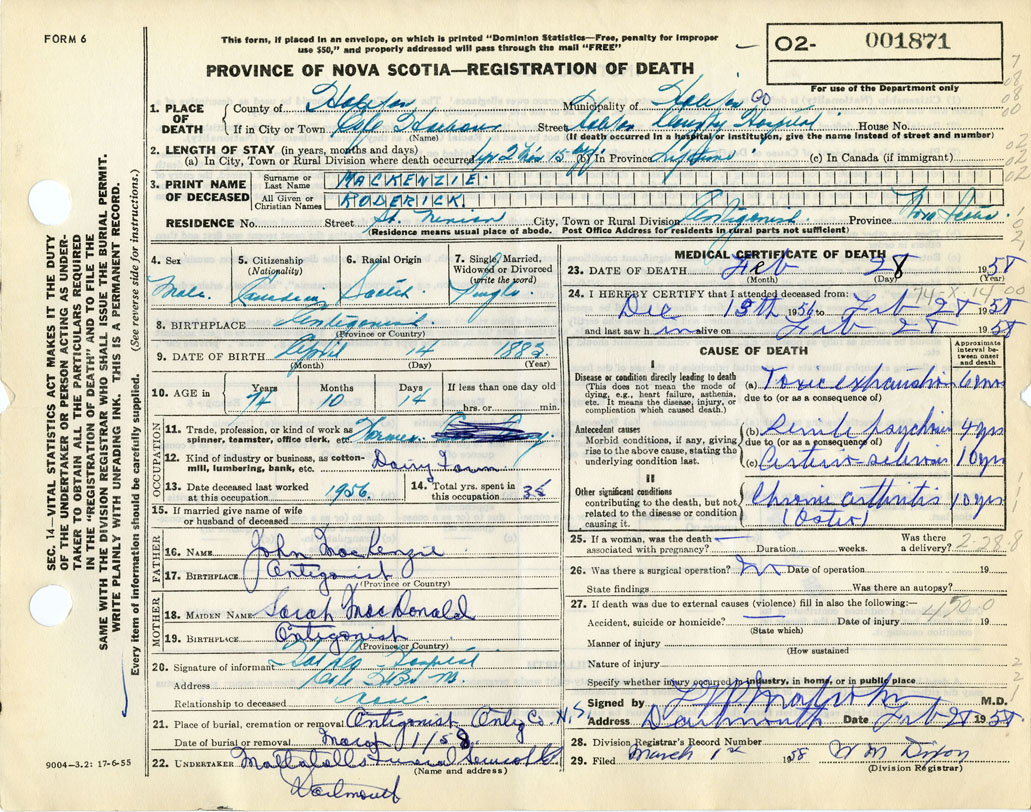 FORM 6
This form, if placed in an envelope, on which is printed "Dominion Statistics—Free, penalty for improper
use $50," and properly addressed will pass through the mail "FREE"
O2- 001871
For use of the Department only
PROVINCE OF NOVA SCOTIA—REGISTRATION OF DEATH
SEC. 14—VITAL STATISTICS ACT MAKES IT THE DUTY
OF THE UNDERTAKER OR PERSON ACTING AS UNDER-
TAKER TO OBTAIN ALL THE PARTICULARS REQUIRED
IN THE "REGISTRATION OF DEATH" AND TO FILE THE
SAME WITH THE DIVISION REGISTRAR WHO SHALL ISSUE THE BURIAL PERMIT.
WRITE PLAINLY WITH UNFADING INK. THIS IS A PERMANENT RECORD.
Every item of information should be carefully supplied. (See reverse side for instructions.)
1. PLACE OF DEATH
County of Halifax Municipality of Halifax Co
If in City or Town Cole Harbour Street Halifax County Hospital House No.
(Name) (If death occurred in a hospital or institution, give the name instead of street and number)
2. LENGTH OF STAY (in years, months and days)
(a) In City, Town or Rural Division where death occurred 1 yr 2 mo's 15 dys (b) In Province Lifetime (c) In Canada (if immigrant)
3. PRINT NAME OF DECEASED
Surname or Last Name MACKENZIE.
All Given or Christian Names RODERICK.
RESIDENCE No. Street St. Ninian City, Town or Rural Division Antigonish. Province Nova Scotia
(Residence means usual place of abode. Post Office Address for residents in rural parts not sufficient)
4. Sex
Male.
5. Citizenship (Nationality)
Canadian
6. Racial Origin
Scotch
7. Single, Married, Widowed or Divorced (write the word)
Single
8. BIRTHPLACE Antigonish.
(Province or Country)
9. DATE OF BIRTH April 14 1883
(Month) (Day) (Year)
10. AGE in Years 74 Months 10 Days 14 If less than one day old
hrs. or min.
OCCUPATION
11. Trade, profession, or kind of work as
spinner, teamster, office clerk, etc. Farmer.
12. Kind of industry or business, as cotton-
mill, lumbering, bank, etc. Dairy Farm
13. Date deceased last worked
at this occupation 1956.
14. Total yrs. spent in
this occupation 35
15. If married give name of wife
or husband of deceased
FATHER
16. NAME John MacKenzie
17. BIRTHPLACE Antigonish
(Province or Country)
MOTHER
18. MAIDEN NAME Sarah MacDonald
19. BIRTHPLACE Antigonish
(Province or Country)
20. Signature of informant Hospital
Address Cole Hbr
Relationship to deceased none
21. Place of burial, cremation or removal Antigonish Antig Co. N.S.
Date of burial or removal March 1/58
22. UNDERTAKER Mattatalls Funeral Service
(Name and address)
Dartmouth
9004—3.2: 17-6-55
MEDICAL CERTIFICATE OF DEATH
23. DATE OF DEATH Feb 28 1958
(Month) (Day) (Year)
24. I HEREBY CERTIFY that I attended deceased from:
Dec 13th 1956 to Feb 28 1958
and last saw him alive on Feb 28 1958
CAUSE OF DEATH
Approximate interval between onset and death
I
Disease or condition directly leading to death
(This does not mean the mode of
dying, e.g., heart failure, asthenia,
etc. It means the disease, injury, or
complication which caused death.)
(a) Toxic exhaustion 6 mos
due to (or as a consequence of)
Antecedent causes
Morbid conditions, if any, giving
rise to the above cause, stating the
underlying condition last.
(b) Senile psychosis 4 yrs
due to (or as a consequence of)
(c) Arterio-sclerosis 10 yrs
II
Other significant conditions
contributing to the death, but not
related to the disease or condition
causing it.
Chronic arthritis 10 yrs
(Osteo)
25. If a woman, was the death
associated with pregnancy? Duration weeks. Was there a delivery?
2-28-8
26. Was there a surgical operation? No Date of operation 19
State findings Was there an autopsy?
27. If death was due to external causes (violence) fill in also the following:
Accident, suicide or homicide? Date of injury 19
(State which)
4500
Manner of injury
(How sustained
Nature of injury
Specify whether injury occurred in industry, in home, or in public place
Signed by M.D.
Address Dartmouth Date Feb 28 1958
28. Division Registrar's Record Number
29. Filed March 1st 1958 W M
(Division Registrar)